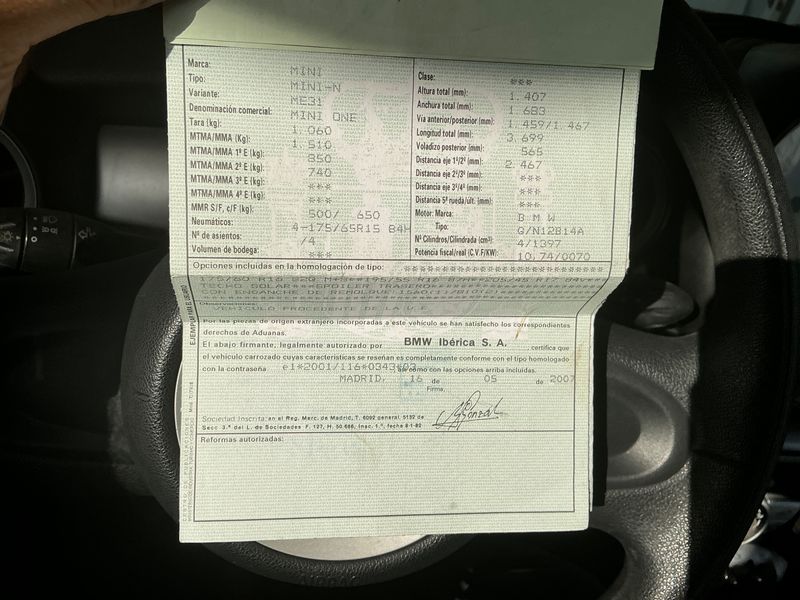 Marca: MINI
Tipo: MINI-N
Variante: ME31
Denominación comercial: MINI ONE
Tara (kg): 1.060
MTMA/MMA (Kg): 1.510
MTMA/MMA 1º E (kg): 850
MTMA/MMA 2º E (kg): 740
MTMA/MMA 3º E (kg): ***
MTMA/MMA 4º E (kg): ***
MMR S/F, c/F (kg): 500/ 650
Neumáticos: 4-175/65R15 84H
Nº de asientos: /4
Volumen de bodega: ***
Clase: ***
Altura total (mm): 1.407
Anchura total (mm): 1.683
Vía anterior/posterior (mm): 1.459/1.467
Longitud total (mm): 3.699
Voladizo posterior (mm): 565
Distancia eje 1º/2º (mm): 2.467
Distancia eje 2º/3º (mm): ***
Distancia eje 3º/4º (mm): ***
Distancia 5ª rueda/últ. (mm): ***
Motor: Marca: B M W
Tipo: G/N12B14A
Nº Cilindros/Cilindrada (cm³): 4/1397
Potencia fiscal/real (C.V.F/KW): 10,74/0070
Opciones incluidas en la homologación de tipo:
TECHO SOLAR***SPOILER TRASERO
CON ENGANCHE DE REMOLQUE
Observaciones:
VEHICULO PROCEDENTE DE LA U.E
Por las piezas de origen extranjero incorporadas a este vehículo se han satisfecho los correspondientes
derechos de Aduanas.
El abajo firmante, legalmente autorizado por BMW Ibérica S. A. certifica que
el vehículo carrozado cuyas características se reseñan es completamente conforme con el tipo homologado
con la contraseña e1*2001/116*0343*03 así como con las opciones arriba incluidas.
MADRID, 16 de 05 de 2007
Firma,
Sociedad Inscrita: en el Reg. Merc. de Madrid, T. 6092 general, 5132 de
Secc 3.ª del L. de Sociedades F. 127, H. 50.686, Inac. 1.ª, fecha 8-1-82
Reformas autorizadas:
EJEMPLAR PARA EL USUARIO
CENTRO DE PUBLICACIONES